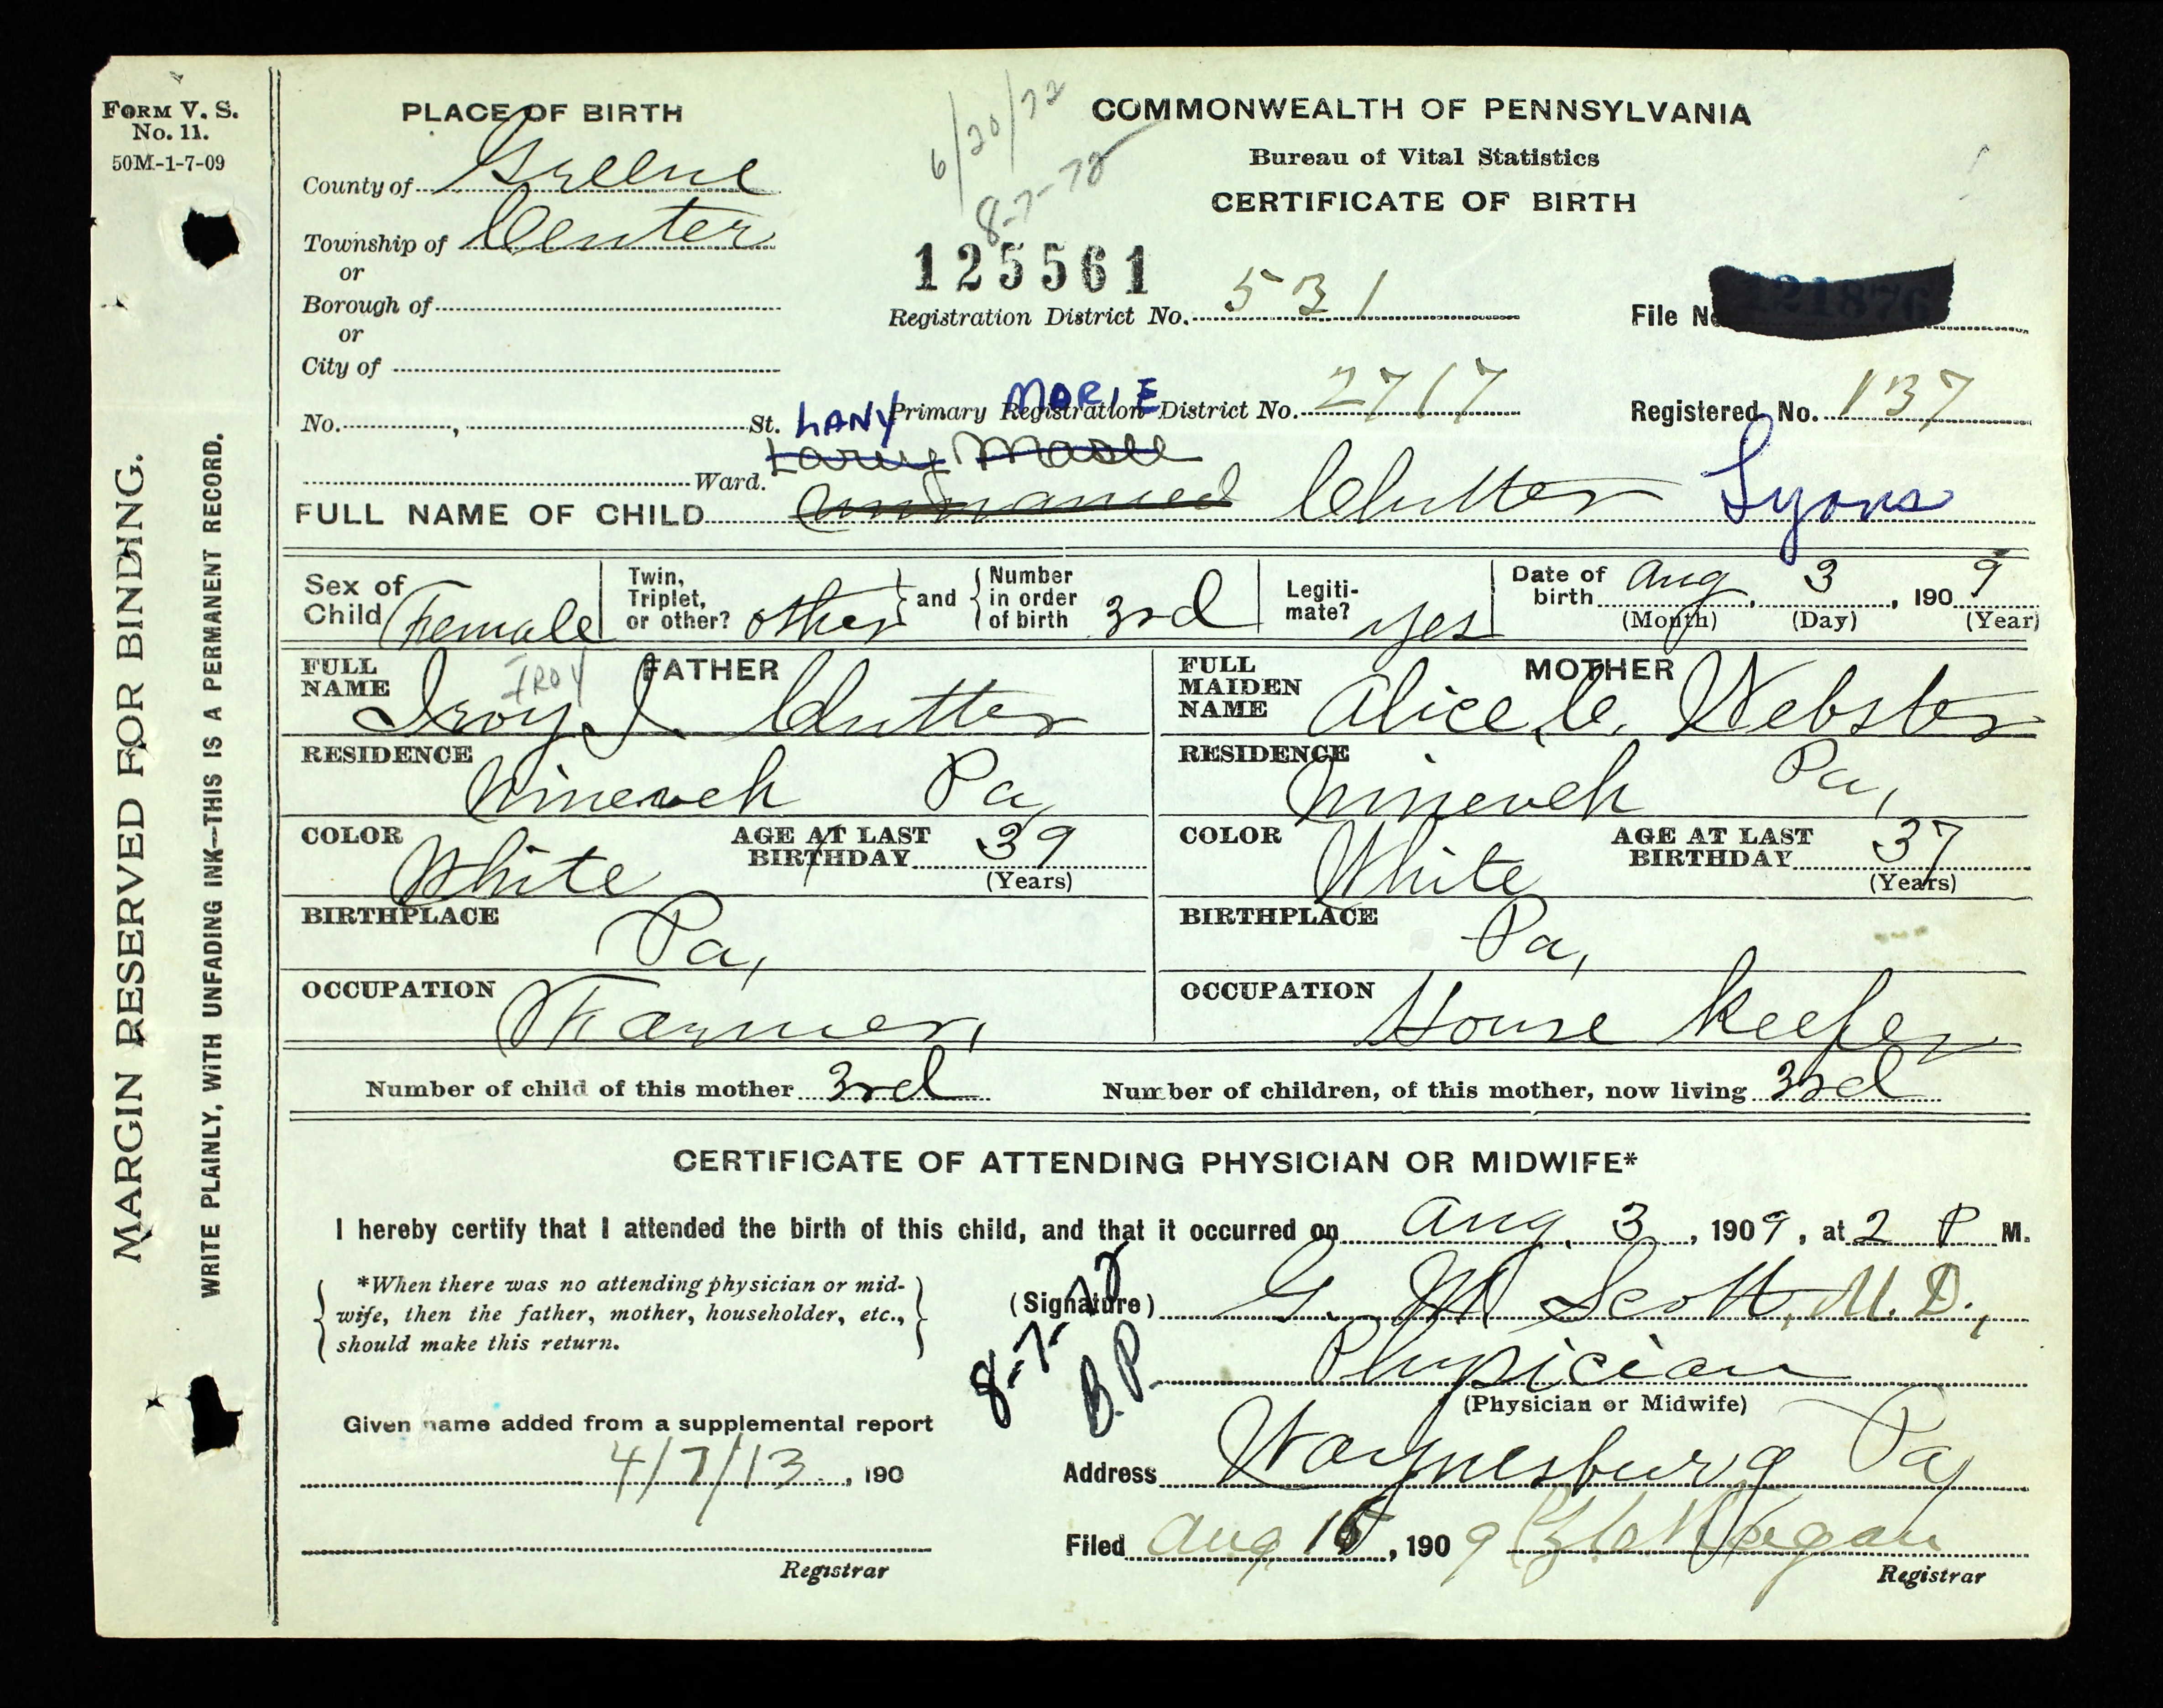 FORM V. S.
No. 11.
50M-1-7-09
MARGIN RESERVED FOR BINDING.
WRITE PLAINLY, WITH UNFADING INK—THIS IS A PERMANENT RECORD.
PLACE OF BIRTH
County of Greene
Township of Center
or
Borough of
or
City of
No. , St.
Ward.
6/20/72
8-7-72
COMMONWEALTH OF PENNSYLVANIA
Bureau of Vital Statistics
CERTIFICATE OF BIRTH
125561
Registration District No. 531
File No. 121876
LANY MORIE
Primary Registration District No. 2717
Registered No. 137
FULL NAME OF CHILD unnamed Clutter Lyons
Sex of Child Female
Twin, Triplet, or other? other and Number in order of birth 3rd
Legitimate? yes
Date of birth Aug, 3, 1909
(Month) (Day) (Year)
FATHER
FULL NAME Iroy I. Clutter
IROY
RESIDENCE Nineveh Pa,
COLOR White
AGE AT LAST BIRTHDAY 39
(Years)
BIRTHPLACE Pa,
OCCUPATION Farmer,
MOTHER
FULL MAIDEN NAME Alice C. Webster
RESIDENCE Nineveh Pa,
COLOR White
AGE AT LAST BIRTHDAY 37
(Years)
BIRTHPLACE Pa,
OCCUPATION House Keeper
Number of child of this mother 3rd
Number of children, of this mother, now living 3rd
CERTIFICATE OF ATTENDING PHYSICIAN OR MIDWIFE*
I hereby certify that I attended the birth of this child, and that it occurred on Aug. 3, 1909, at 2 P M.
*When there was no attending physician or mid-
wife, then the father, mother, householder, etc.,
should make this return.
(Signature) G. M Scott, M. D.,
8-7-72
B.P.
Physician
(Physician or Midwife)
Given name added from a supplemental report
4/7/13, 190
Registrar
Address Waynesburg Pa,
Filed Aug 15, 1909
Registrar